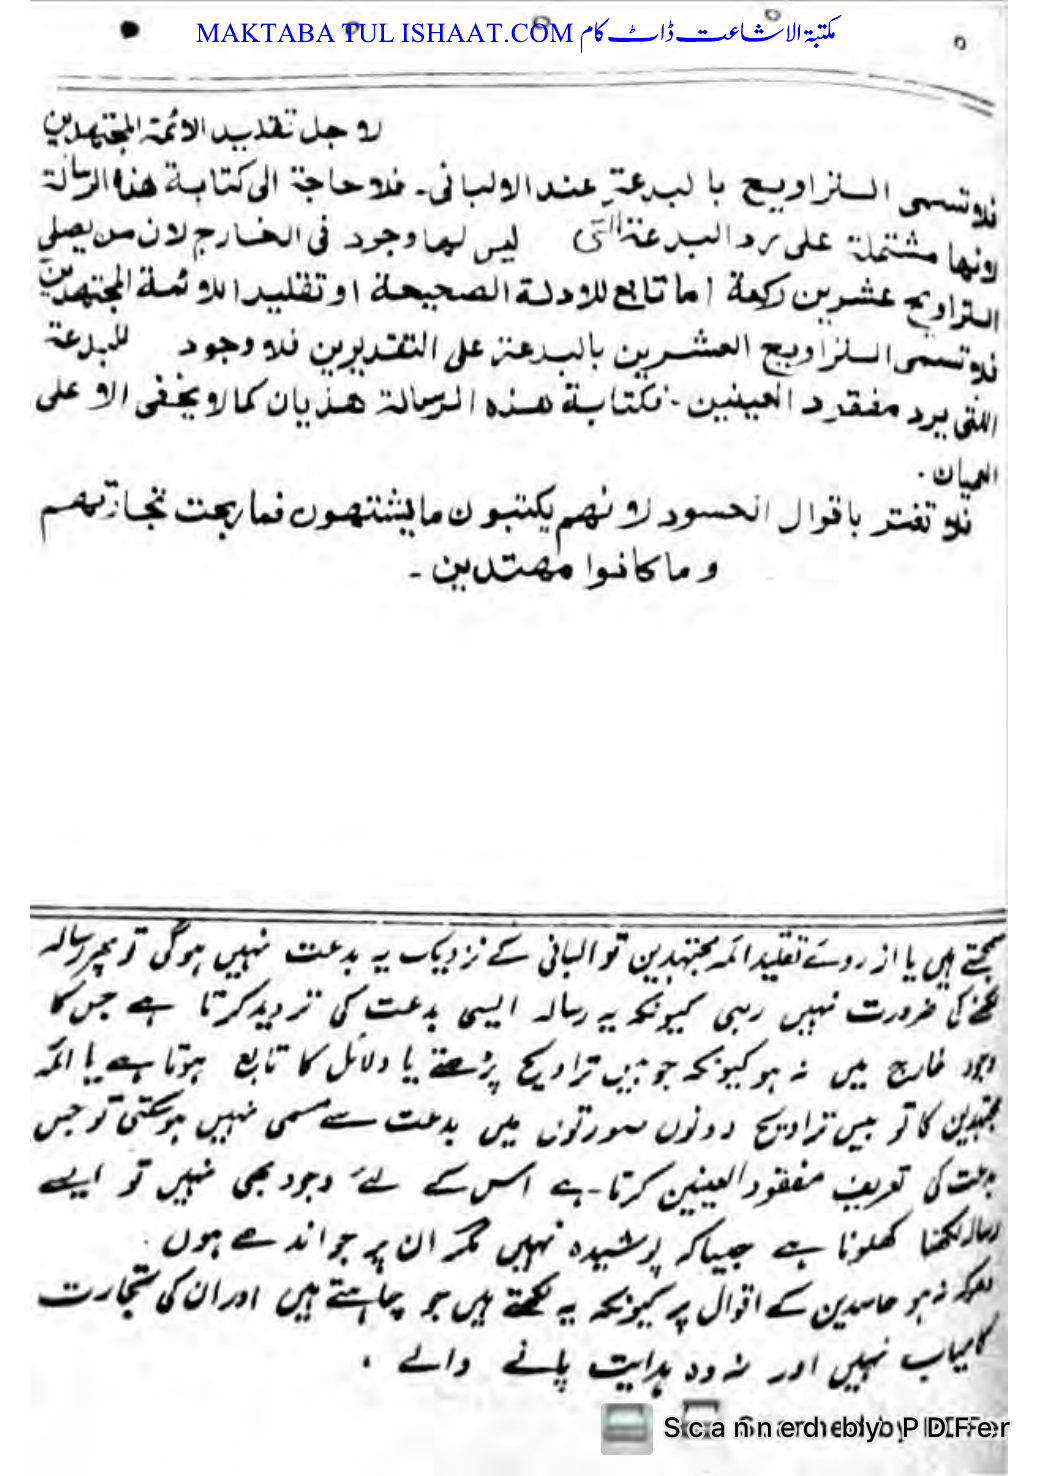 MAKTABA TUL ISHAAT.COM مکتبۃ الاشاعت ڈاٹ کام
لاجل تقليد الائمة المجتهدين
فلا تسمى التراويح بالبدعة عند الالبانى۔ فلا حاجة الى كتابة هذه الرسالة
لانها مشتملة على رد البدعة التى ليس لها وجود فى الخارج لان من يصلى
التراويح عشرين ركعة اما تابع للادلة الصحيحة او تقليد الائمة المجتهدين
فلا تسمى التراويح العشرين بالبدعة على التقديرين فلا وجود للبدعة
التى يرد مفقود العينين۔ فكتابة هذه الرسالة هذيان كما لا يخفى الا على
العميان۔
فلا تغتر باقوال الحسود لانهم يكتبون ما يشتهون فما ربحت تجارتهم
وما كانوا مهتدين۔
سمجھتے ہیں یا از روئے تقلید ائمہ مجتہدین تو البانی کے نزدیک یہ بدعت نہیں ہوگی تو پھر رسالہ
لکھنے کی ضرورت نہیں رہی کیونکہ یہ رسالہ ایسی بدعت کی تردید کرتا ہے جس کا
وجود خارج میں نہ ہو کیونکہ جو بیس تراویح پڑھتے یا دلائل کا تابع ہوتا ہے یا ائمہ
مجتہدین کا تو بیس تراویح دونوں صورتوں میں بدعت سے مسمی نہیں ہوسکتی تو جس
بدعت کی تعریف مفقود العینین کرتا ہے اس کے لئے وجود بھی نہیں تو ایسے
رسالہ لکھنا کھلونا ہے جیسا کہ پوشیدہ نہیں مگر ان پر جو اندھے ہوں۔
دھوکہ نہ ہو حاسدین کے اقوال پر کیونکہ یہ لکھتے ہیں جو چاہتے ہیں اور ان کی تجارت
کامیاب نہیں اور نہ وہ ہدایت پانے والے۔